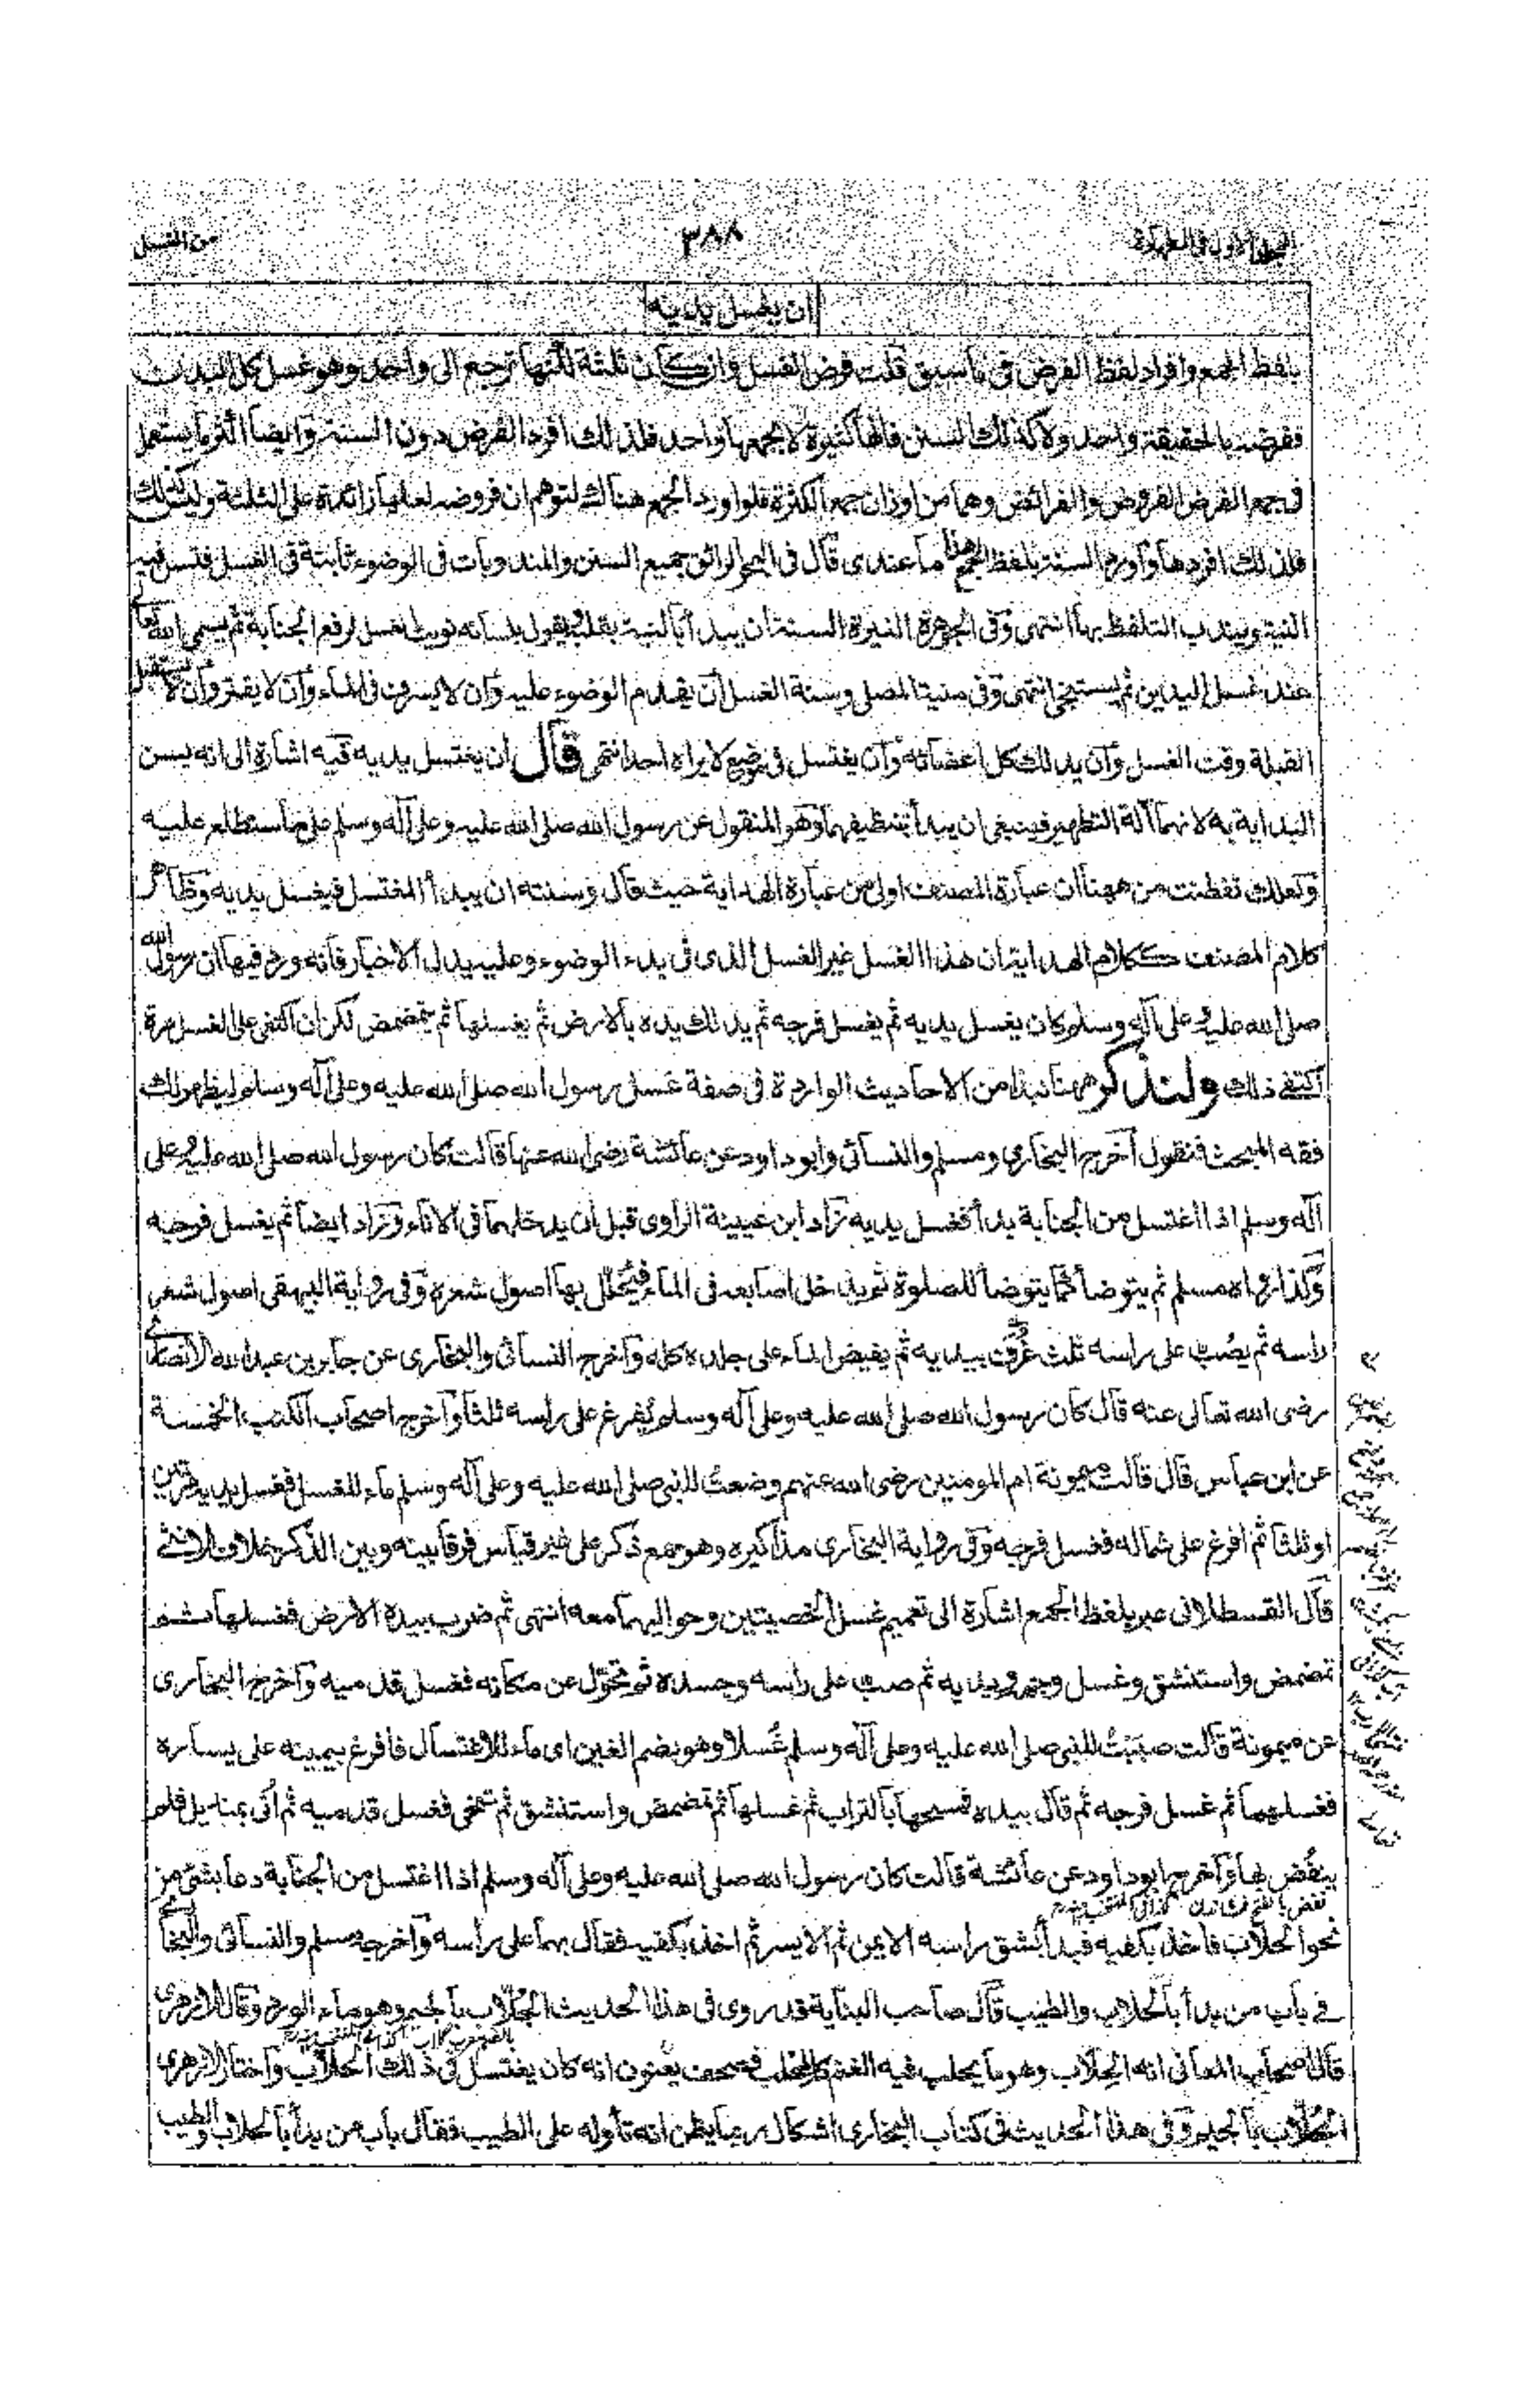 المجلد الاول في الطهارة
٣٨٨
من الغسل
ان يغسل يديه
بلفظ الجمع وافراد لفظ الفرض في ما سبق قلت فرض الغسل وان كان ثلثة لكنها ترجع الى واحد وهو غسل كل البدن
ففرضه بالحقيقة واحد ولا كذلك السنن فانها كثيرة لا يجمعها واحد فلذلك افرد الفرض دون السنة وايضا اكثر ما يستعمل
في جمع الفرض الفروض والفرائض وهما من اوزان جمع الكثرة فلو اورد الجمع هناك لتوهم ان فروضه لعلها زائدة على الثلثة وليس كذلك
فلذلك افردها واورد السنة بلفظ الجمع هذا ما عندى قال فى البحر الرائق جميع السنن والمندوبات فى الوضوء ثابتة فى الغسل فتسن فيه
النية ويندب التلفظ بها انتهى وفى الجوهرة النيرة السنة ان يبدأ بالنية بقلبه ويقول بلسانه نويت الغسل لرفع الجنابة ثم يسمى الله تعالى
عند غسل اليدين ثم يستنجى انتهى وفى منية المصلى وسنة الغسل ان يقدم الوضوء عليه وان لا يسرف فى الماء وان لا يقتر وان لا يستقبل
القبلة وقت الغسل وان يدلك كل اعضائه وان يغتسل فى موضع لا يراه احد انتهى قال ان يغتسل يديه فيه اشارة الى انه يسن
البداية به لانهما آلة التطهير فينبغى ان يبدأ بتنظيفهما وهو المنقول عن رسول الله صلى الله عليه وعلى آله وسلم على ما ستطلع عليه
ولعلك تفطنت من ههنا ان عبارة المصنف اولى من عبارة الهداية حيث قال وسنته ان يبدأ المغتسل فيغسل يديه وظاهر
كلام المصنف ككلام الهداية ان هذا الغسل غير الغسل الذى فى بدء الوضوء وعليه يدل الاخبار فانه ورد فيها ان رسول الله
صلى الله عليه وعلى آله وسلم كان يغسل يديه ثم يغسل فرجه ثم يدلك يده بالارض ثم يغسلها ثم يتمضمض لكن ان اكتفى على الغسل مرة
اكتفى ذلك ولنذكر ههنا نبذا من الاحاديث الواردة فى صفة غسل رسول الله صلى الله عليه وعلى آله وسلم ليظهر لك
فقه المبحث فنقول اخرج البخارى ومسلم والنسائى وابو داود عن عائشة رضى الله عنها قالت كان رسول الله صلى الله عليه وعلى
آله وسلم اذا اغتسل من الجنابة بدأ فغسل يديه زاد ابن عيينة الراوى قبل ان يدخلهما فى الاناء وزاد ايضا ثم يغسل فرجه
وكذا رواه مسلم ثم يتوضأ كما يتوضأ للصلوة ثم يدخل اصابعه فى الماء فيخلل بها اصول شعره وفى رواية البيهقى اصول شعر
راسه ثم يصب على راسه ثلث غرف بيديه ثم يفيض الماء على جلده كله واخرج النسائى والبخارى عن جابر بن عبد الله الانصارى
رضى الله تعالى عنه قال كان رسول الله صلى الله عليه وعلى آله وسلم يفرغ على راسه ثلثا واخرج اصحاب الكتب الخمسة
عن ابن عباس قال قالت ميمونة ام المومنين رضى الله عنهم وضعت للنبى صلى الله عليه وعلى آله وسلم ماء للغسل فغسل يديه مرتين
او ثلثا ثم افرغ على شماله فغسل فرجه وفى رواية البخارى مذاكيره وهو جمع ذكر على غير قياس فرقا بينه وبين الذكر خلاف الانثى
قال القسطلانى عبر بلفظ الجمع اشارة الى تعميم غسل الخصيتين وحواليهما معه انتهى ثم ضرب بيده الارض فغسلها ثم
تمضمض واستنشق وغسل وجهه ويديه ثم صب على راسه وجسده ثم تحول عن مكانه فغسل قدميه واخرج البخارى
عن ميمونة قالت صببت للنبى صلى الله عليه وعلى آله وسلم غسلا وهو بضم الغين اى ماء للاغتسال فافرغ بيمينه على يساره
فغسلهما ثم غسل فرجه ثم قال بيده فمسحها بالتراب ثم غسلها ثم تمضمض واستنشق ثم تنحى فغسل قدميه ثم اتى بمنديل فلم
ينفض بها واخرج ابو داود عن عائشة قالت كان رسول الله صلى الله عليه وعلى آله وسلم اذا اغتسل من الجنابة دعا بشئ من
نحو الحلاب فاخذ بكفيه فبدأ بشق راسه الايمن ثم الايسر ثم اخذ بكفيه فقال بهما على راسه واخرجه مسلم والنسائى والبخارى
فى باب من بدأ بالحلاب والطيب قال صاحب البناية قد روى فى هذا الحديث الجلاب بالجيم وهو ماء الورد وقال الازهرى
قال اصحاب المعانى انه الحلاب وهو ما يحلب فيه الغنم كالمحلب فصحف يعنون انه كان يغتسل فى ذلك الحلاب واختار الازهرى
الجلاب بالجيم وفى هذا الحديث فى كتاب البخارى اشكال ربما يظن انه تأوله على الطيب فقال باب من بدأ بالحلاب والطيب